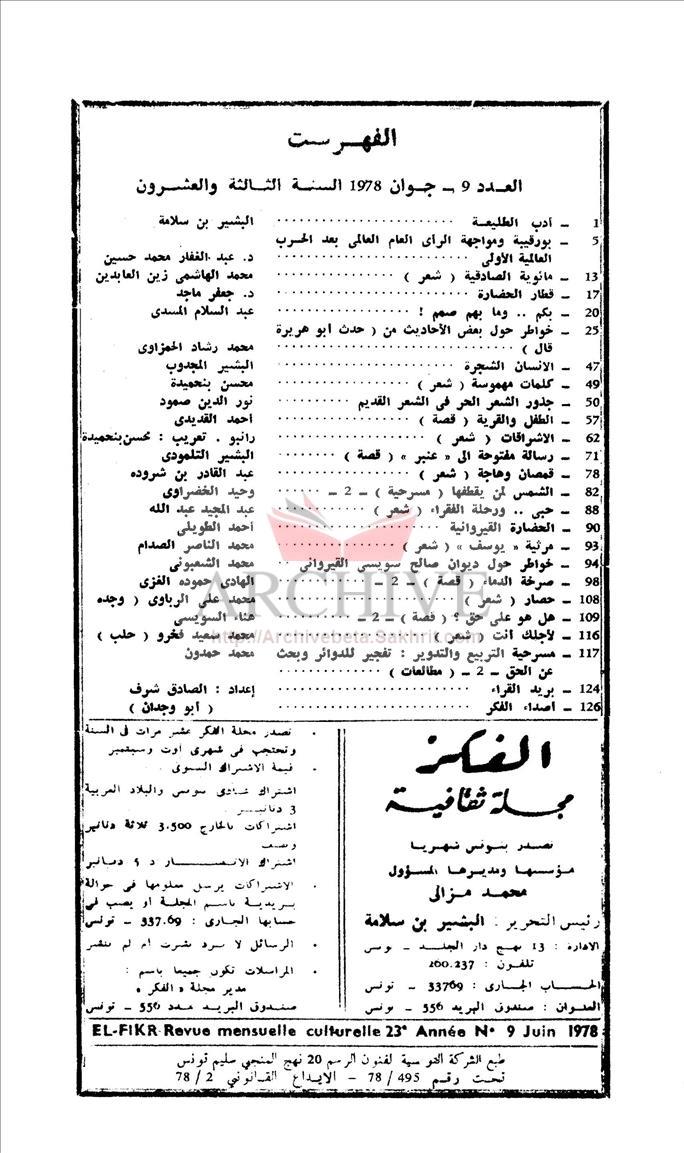 الفهرست
العدد 9 ـ جوان 1978 السنة الثالثة والعشرون
1 ـ أدب الطليعة البشير بن سلامة
5 ـ بورقيبة ومواجهة الرأى العام العالمى بعد الحرب
العالمية الأولى د. عبد الغفار محمد حسين
13 ـ مانوية الصادقية ( شعر ) محمد الهاشمى زين العابدين
17 ـ قطار الحضارة د. جعفر ماجد
20 ـ بكم .. وما بهم صمم ! عبد السلام المسدى
25 ـ خواطر حول بعض الأحاديث من ( حدث أبو هريرة
قال ) محمد رشاد الحمزاوى
47 ـ الانسان الشجرة البشير المجدوب
49 ـ كلمات مهموسة ( شعر ) محسن بنحميدة
50 ـ جذور الشعر الحر فى الشعر القديم نور الدين صمود
57 ـ الطفل والقرية ( قصة ) أحمد القديدى
62 ـ الاشراقات ( شعر ) رانبو . تعريب : محسن بنحميدة
71 ـ رسالة مفتوحة الى « عنبر » ( قصة ) البشير التلمودى
78 ـ قمصان وهاجة ( شعر ) عبد القادر بن شروده
82 ـ الشمس لن يقطفها ( مسرحية ) ـ 2 ـ وحيد الخضراوى
88 ـ حبى .. ورحلة الفقراء ( شعر ) عبد المجيد عبد الله
90 ـ الحضارة القيروانية أحمد الطويلى
93 ـ مرثية « يوسف » ( شعر ) محمد الناصر الصدام
94 ـ خواطر حول ديوان صالح سويسى القيروانى محمد الشعبونى
98 ـ صرخة الدماء ( قصة ) ـ 2 ـ الهادى حموده الغزى
108 ـ حصار ( شعر ) محمد على الرباوى ( وجده )
109 ـ هل هو على حق ؟ ( قصة ) ـ 2 ـ هناء السويسى
116 ـ لأجلك أنت ( شعر ) محمد سعيد فخرو ( حلب )
117 ـ مسرحية التربيع والتدوير : تفجير للدوائر وبحث محمد حمدون
عن الحق ـ 2 ـ ( مطالعات )
124 ـ بريد القراء إعداد : الصادق شرف
126 ـ أصداء الفكر ( أبو وجدان )
ARCHIVE
http://Archivebeta.Sakhrit.com
الفكر
مجلة ثقافية
تصدر بتونس شهريا
مؤسسها ومديرها المسؤول
محمد مزالى
رئيس التحرير : البشير بن سلامة
الادارة : 13 نهج دار الجلد ـ تونس
تلفون : 260.237
الحساب الجارى : 33769 ـ تونس
العنوان : صندوق البريد 556 ـ تونس
تصدر مجلة الفكر عشر مرات فى السنة
وتحتجب فى شهرى أوت وسبتمبر
قيمة الاشتراك السنوى
اشتراك عادى تونس والبلاد العربية
3 دنانير
اشتراكات بالخارج 3.500 ثلاثة دنانير
ونصف
اشتراك الانصار
الاشتراكات يرسل معلومها فى حوالة
بريدية باسم المجلة أو يصب فى
حسابها الجارى : 337.69 ـ تونس
الرسائل لا ترد نشرت أم لم تنشر
المراسلات تكون جميعا باسم :
مدير مجلة « الفكر »
صندوق البريد عدد 556 ـ تونس
EL-FIKR Revue mensuelle culturelle 23e Année N° 9 Juin 1978
طبع الشركة التونسية لفنون الرسم 20 نهج المنجي سليم تونس
تحت رقم 495 / 78 ـ الايداع القانوني 2 / 78